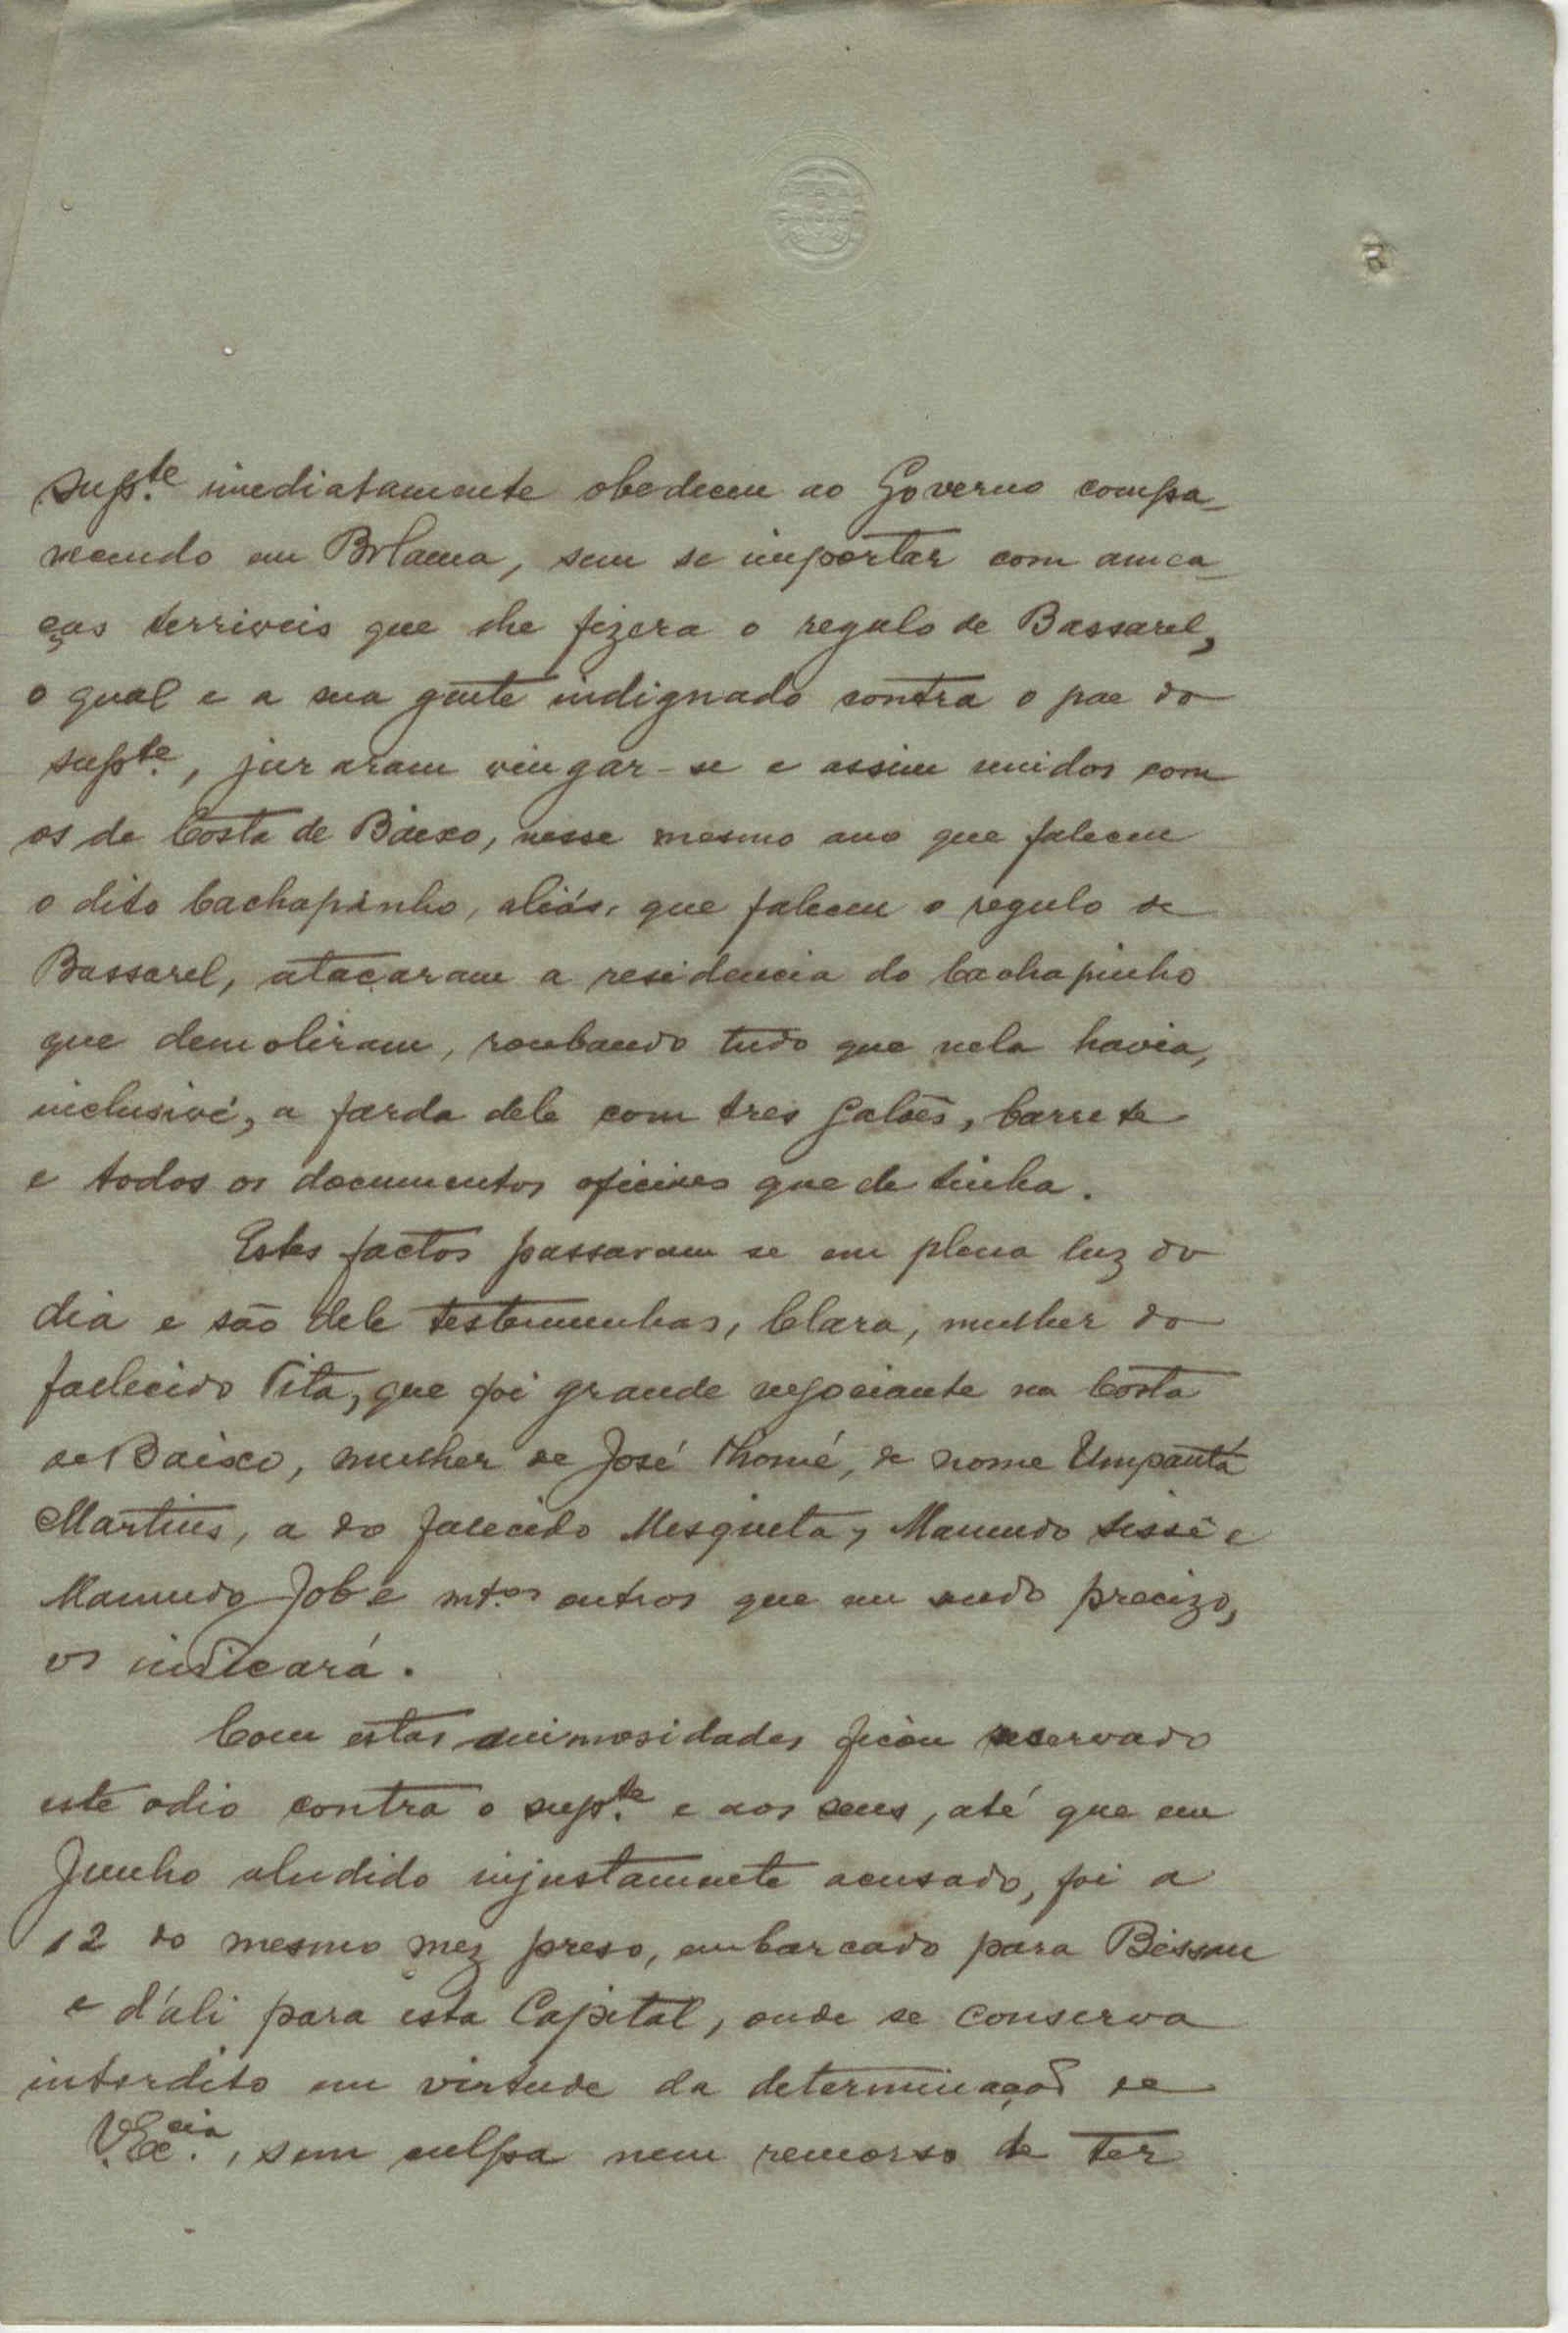 supte. imediatamente obedeceu ao Governo compa-
recendo em Bolama, sem se importar com amea-
ças terriveis que lhe fizera o regulo de Bassarel,
o qual e a sua gente indignado contra o pae do
supte., juraram vingar-se e assim unidos com
os da Costa de Baixo, nesse mesmo ano que faleceu
o dito Cachapinho, aliás, que faleceu o regulo de
Bassarel, atacaram a residencia do Cachapinho
que demoliram, roubando tudo que nela havia,
inclusivé, a farda dele com tres galões, barrete
e todos os documentos oficiaes que detinha.
Estes factos passaram se em plena luz do
dia e são dele testemunhas, Clara, mulher do
faelecido Pita, que foi grande negociante na Costa
de Baixo, mulher de José Thomé, de nome Umpantá
Martins, a do falecido Mesquita, Mamudo Sissé e
Mamudo Jobe e mt.os outros que em sendo precizo,
os indicará.
Com estas animosidades ficou reservado
este odio contra o supte. e aos seus, até que em
Junho aludido injustamente acusado, foi a
12 do mesmo mez preso, embarcado para Bissau
e d'ali para esta Capital, onde se conserva
interdito em virtude da determinação de
V. Ex.cia, sem culpa nem remorso de ter